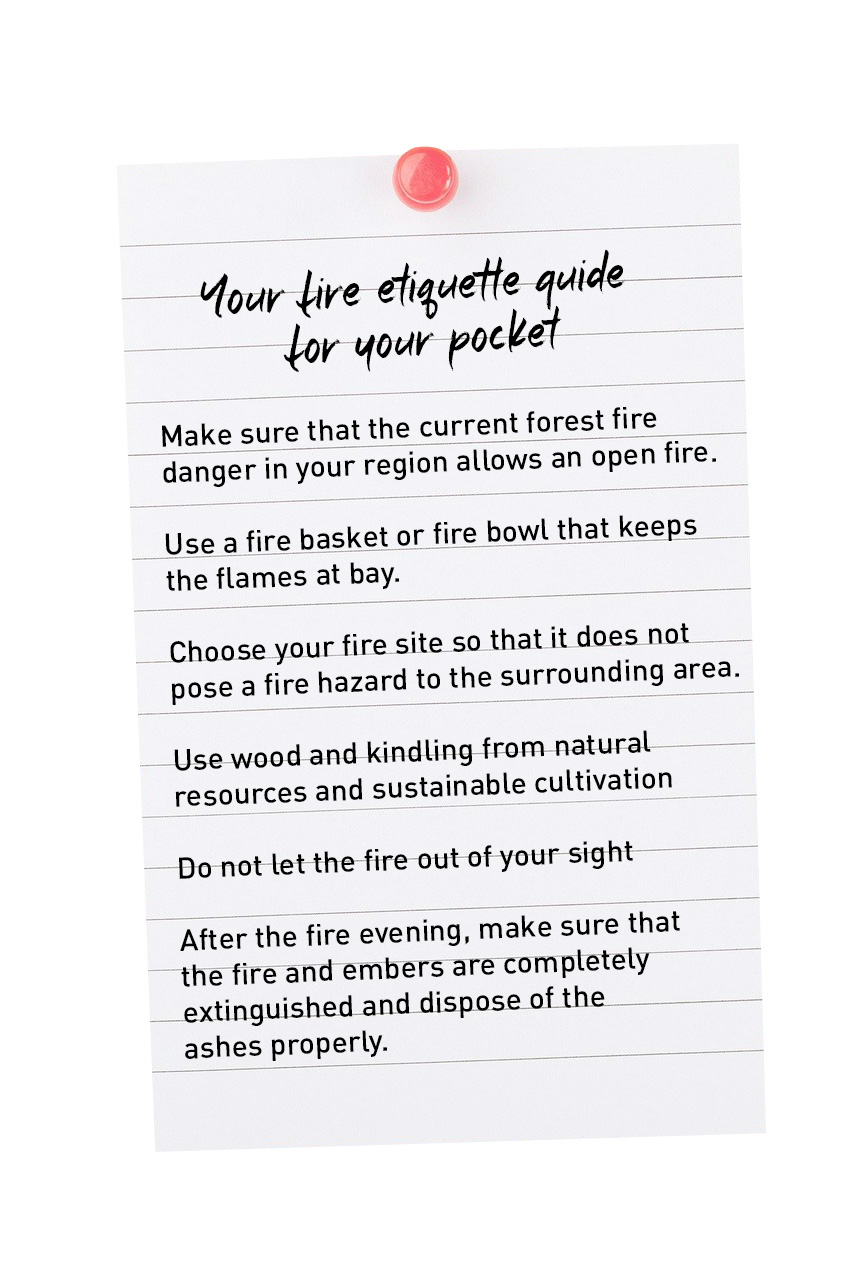 Your fire etiquette guide
for your pocket
Make sure that the current forest fire
danger in your region allows an open fire.
Use a fire basket or fire bowl that keeps
the flames at bay.
Choose your fire site so that it does not
pose a fire hazard to the surrounding area.
Use wood and kindling from natural
resources and sustainable cultivation
Do not let the fire out of your sight
After the fire evening, make sure that
the fire and embers are completely
extinguished and dispose of the
ashes properly.